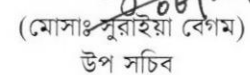 (মোসাঃ সুরাইয়া বেগম)
উপ সচিব